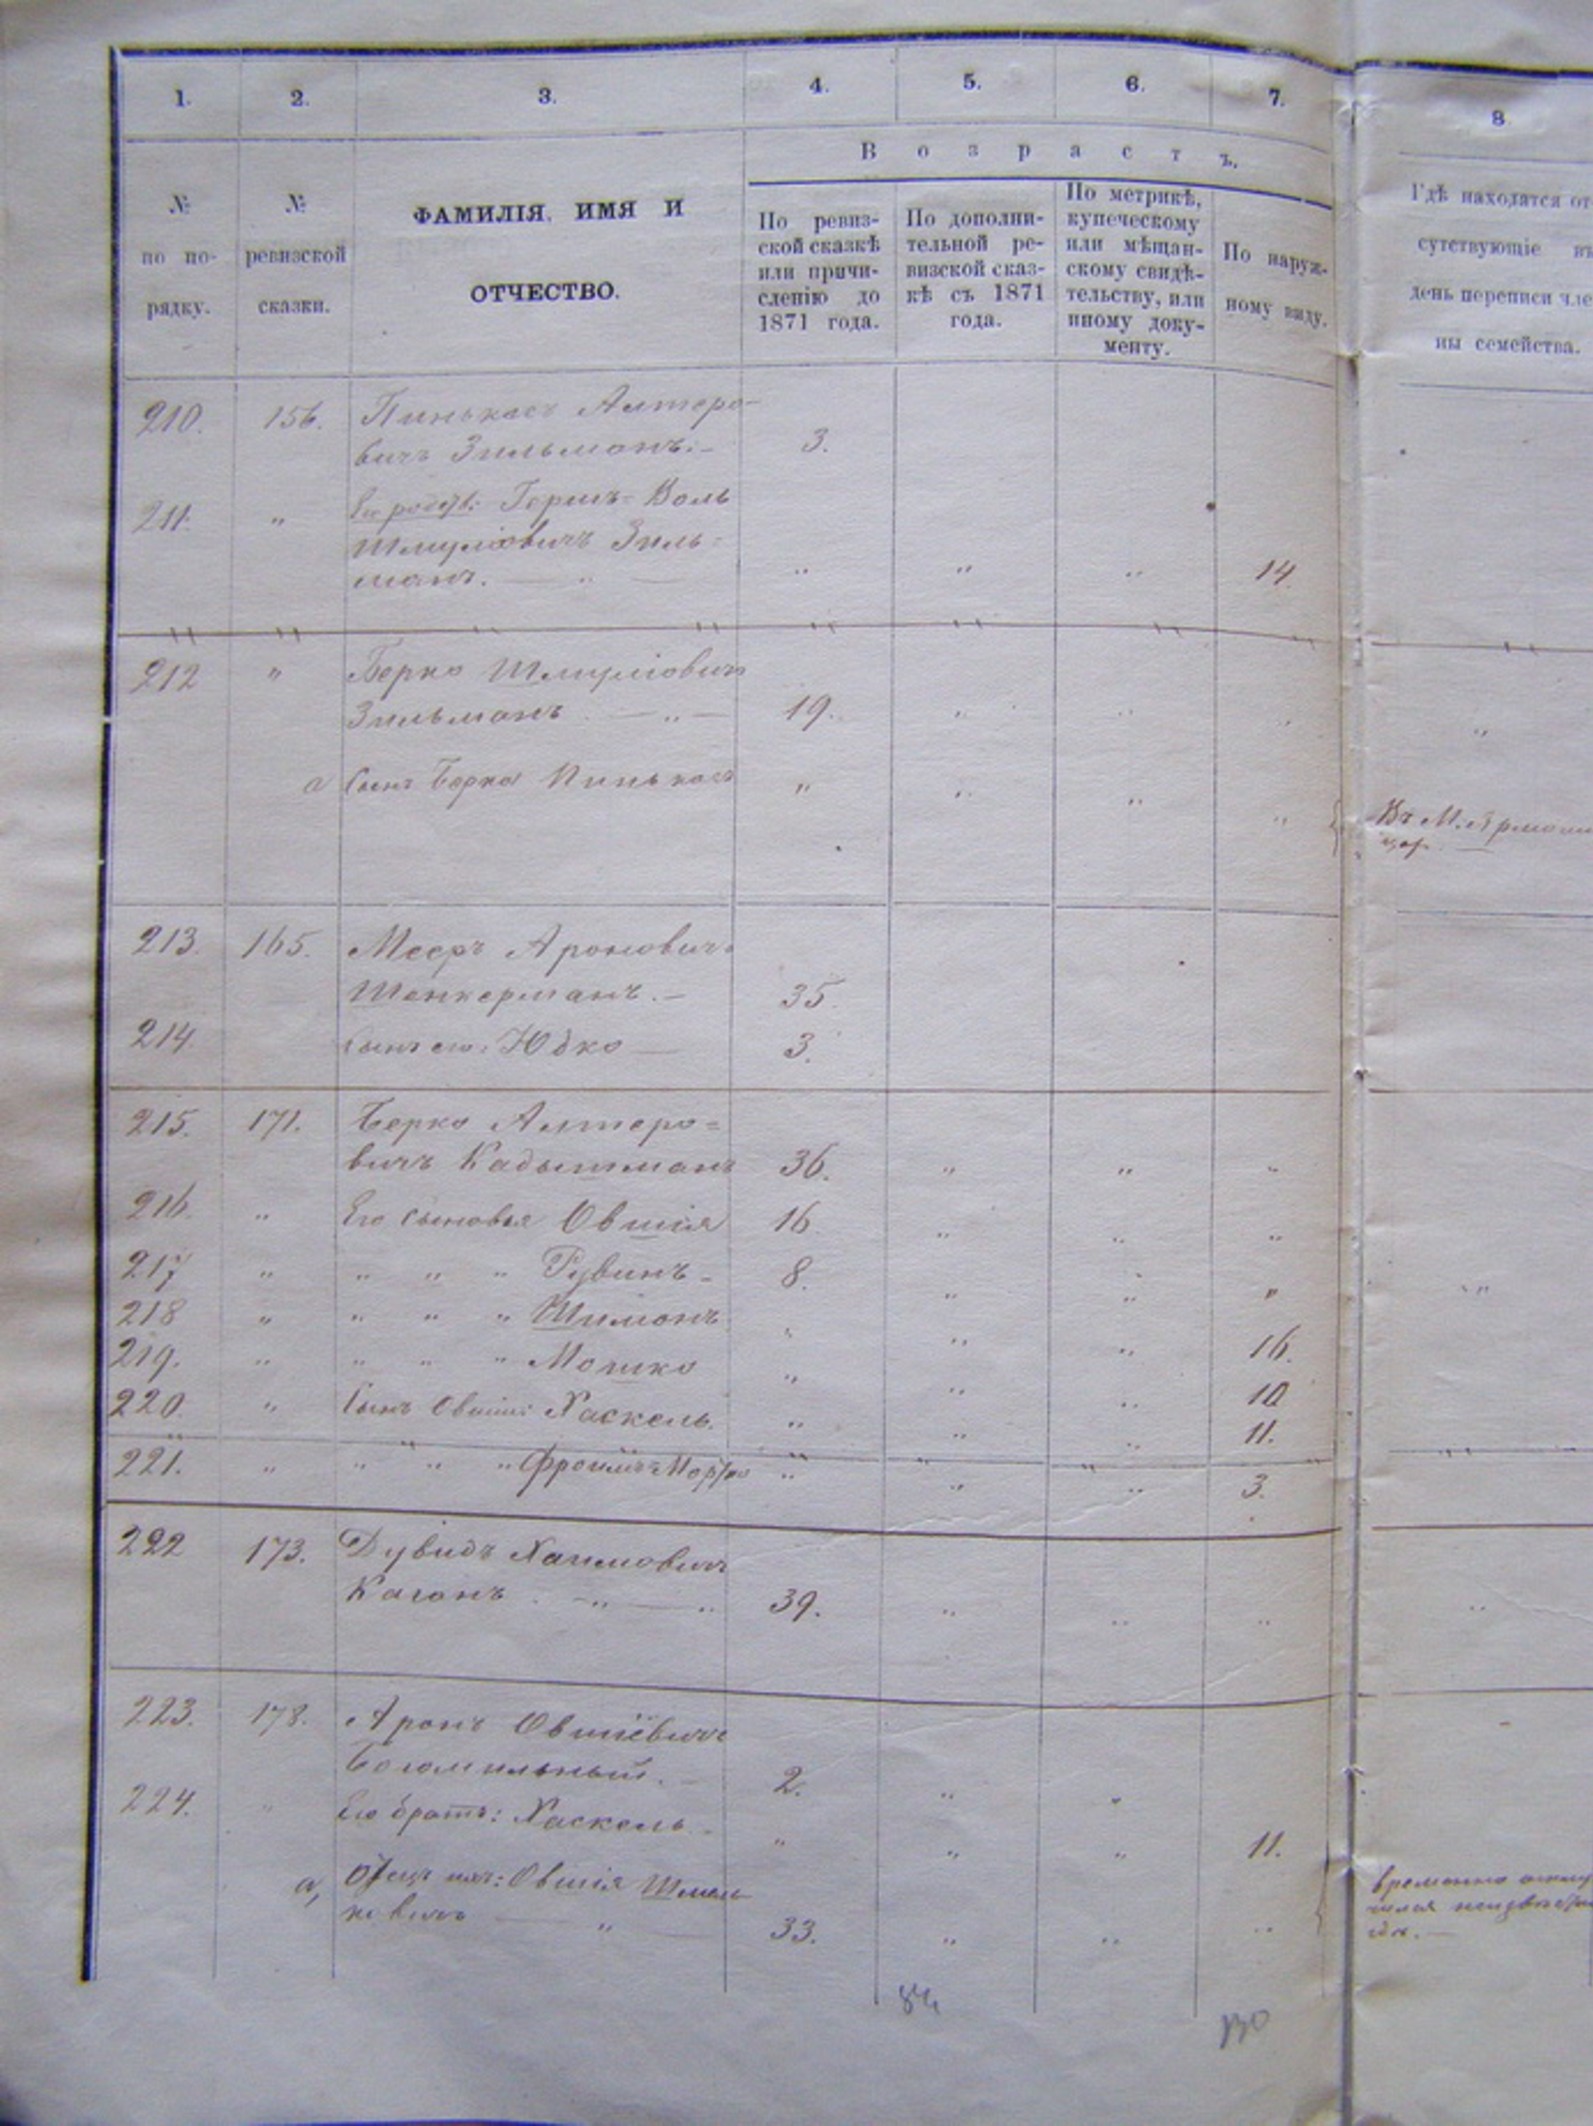 1. 2. 3. 4. 5. 6. 7. 8
В о з р а с т ъ.
№ по по-рядку.
№ ревизской сказки.
ФАМИЛІЯ, ИМЯ И
ОТЧЕСТВО.
По ревиз-
ской сказкѣ
или причи-
сленію до
1871 года.
По дополни-
тельной ре-
визской сказ-
кѣ съ 1871
года.
По метрикѣ,
купеческому
или мѣщан-
скому свидѣ-
тельству, или
иному доку-
менту.
По наруж-
ному виду.
Гдѣ находятся от-
сутствующіе въ
день переписи чле-
ны семейства.
210. 156. Пинькасъ Алтеро-
вичъ Зильманъ. 3.
211. " Его родств: Гершъ-Воль
Шмуліовичъ Зиль-
манъ. " " " " 14
212 " Берко Шмуліовичъ
Зильманъ " 19. " " " "
а Сынъ Берка Пинькасъ " " " "
Въ М.
213. 165. Мееръ Ароновичъ
Шенкерманъ. 35.
214 Сынъ его: Юдко 3.
215. 171. Берко Алтеро=
вичъ Кадышманъ 36. " " "
216. " Его сыновья Овшія 16 " " "
217 " " " " Рувинъ 8. " " " "
218 " " " " Шимонъ " " " 16.
219. " " " " Мошко " " " 10
220. " Сынъ Овшіи Хаскель. " " " 11.
221. " " " " Фроимъ Мортко " " " 3.
222 173. Дувидъ Хаимовичъ
Каганъ " " 39. " " " "
223. 178. Аронъ Овшіевичъ
Богомильный. 2. " "
224. " Его братъ: Хаскель " " " 11.
а, Отецъ ихъ: Овшія Шмель-
ковичъ " 33. " " "
временно отлу
чился неизвѣстно
гдѣ.
84
130